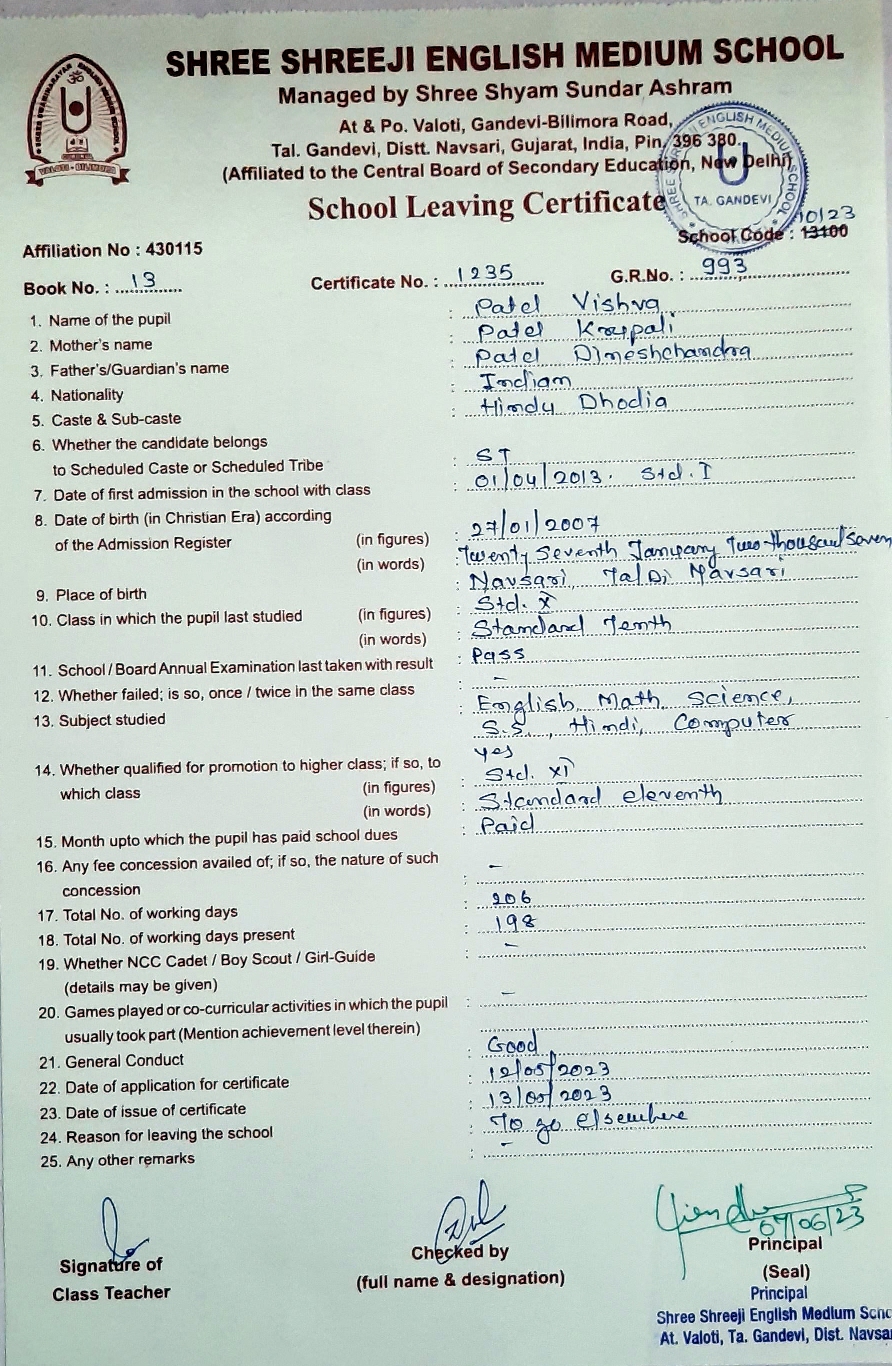 SHREE SHREEJI ENGLISH MEDIUM SCHOOL
Managed by Shree Shyam Sundar Ashram
At & Po. Valoti, Gandevi-Bilimora Road,
Tal. Gandevi, Distt. Navsari, Gujarat, India, Pin. 396 380.
(Affiliated to the Central Board of Secondary Education, New Delhi)
VALOTI - BILIMORA
ENGLISH MEDIUM SCHOOL
TA. GANDEVI
School Leaving Certificate
10/23
Affiliation No : 430115
School Code : 13100
Book No. : 13 Certificate No. : 1235 G.R.No. : 993
1. Name of the pupil : Patel Vishva
2. Mother's name : Patel Krupali
3. Father's/Guardian's name : Patel Dineshchandra
4. Nationality : Indian
5. Caste & Sub-caste : Hindu Dhodia
6. Whether the candidate belongs
to Scheduled Caste or Scheduled Tribe : ST
7. Date of first admission in the school with class : 01/04/2013. Std. I
8. Date of birth (in Christian Era) according
of the Admission Register (in figures) : 27/01/2007
(in words) : Twenty Seventh January Two thousand seven
9. Place of birth : Navsari, Tal Di Navsari
10. Class in which the pupil last studied (in figures) : Std. X
(in words) : Standard Tenth
11. School / Board Annual Examination last taken with result : Pass
12. Whether failed; is so, once / twice in the same class : -
13. Subject studied : English, Math, Science,
S.S., Hindi, Computer
14. Whether qualified for promotion to higher class; if so, to : yes
which class (in figures) : Std. XI
(in words) : Standard eleventh
15. Month upto which the pupil has paid school dues : Paid
16. Any fee concession availed of; if so, the nature of such
concession : -
17. Total No. of working days : 206
18. Total No. of working days present : 198
19. Whether NCC Cadet / Boy Scout / Girl-Guide : -
(details may be given)
20. Games played or co-curricular activities in which the pupil : -
usually took part (Mention achievement level therein)
21. General Conduct : Good
22. Date of application for certificate : 12/05/2023
23. Date of issue of certificate : 13/05/2023
24. Reason for leaving the school : To go elsewhere
25. Any other remarks : -
07/06/23
Signature of
Class Teacher
Checked by
(full name & designation)
Principal
(Seal)
Principal
Shree Shreeji English Medium Scho
At. Valoti, Ta. Gandevi, Dist. Navsa